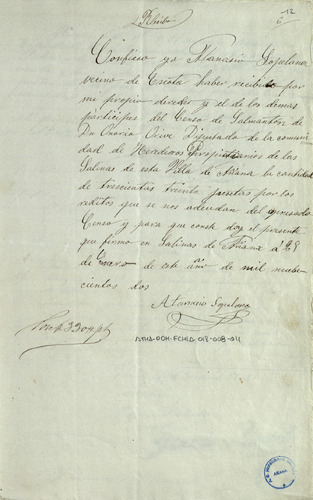 12
6
Recibo
Confieso yo Atanasio Sopelana
vecino de Escota haber recibido por
mi propio derecho y el de los demas
participes del Censo de Salmantón de
Dn Onorio Orive Diputado de la comuni
dad de Herederos Propietarios de las
Salinas de esta Villa de Añana la cantidad
de trescientas treinta pesetas por los
reditos que se nos adeudan del expresado
Censo y para que conste doy el presente
que firmo en Salinas de Añana a 28
de Enero de este año de mil nuebe
cientos dos
Atanasio Sopelana
Son ps 330 pts
ATHA-DOH-FCHLD-018-008-011
AÑANA